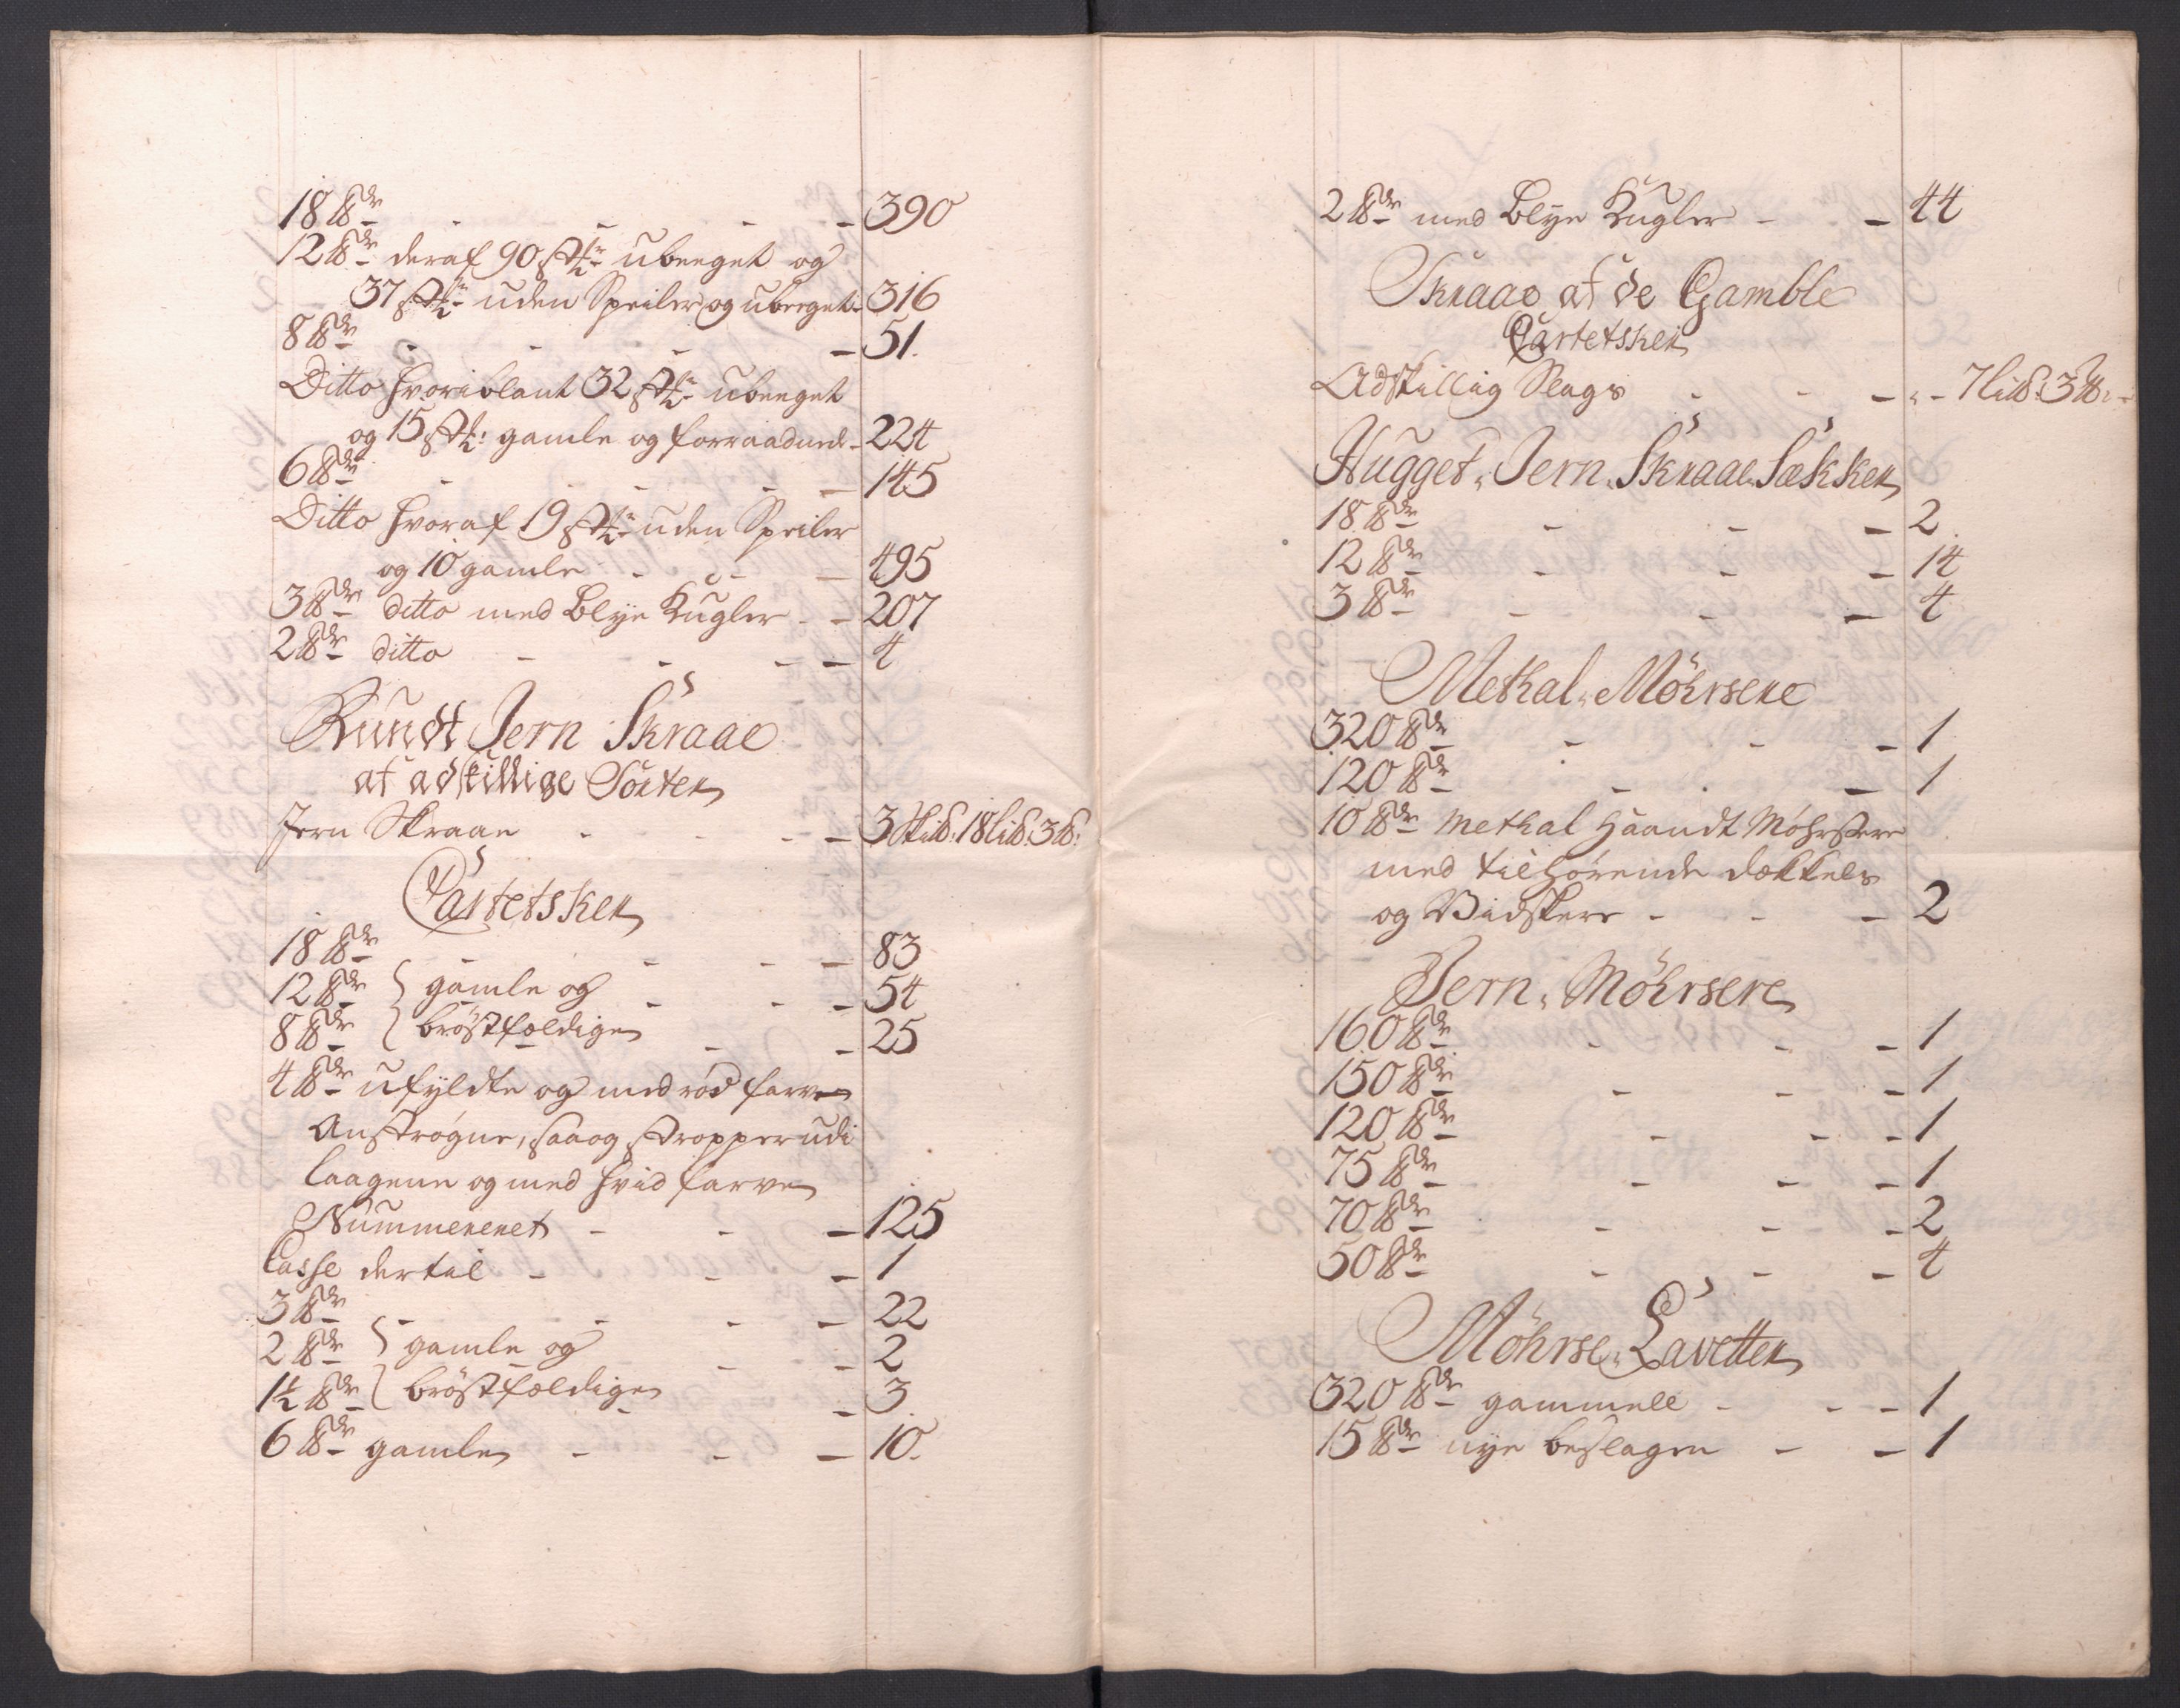 18 ℔dr - - - - 390
12 ℔dr deraf 90 stkr ubeeget og
37 stkr uden Speiler og ubeeget - 316
8 ℔dr - - - - 51.
Ditto hvoriblant 32 stkr ubeeget
og 15 stk: gamle og forraadnede - 224
6 ℔dr - - - - 145
Ditto hvoraf 19 stkr uden Speiler
og 10 gamle - - - 495
3 ℔dr ditto med Blye Kugler - - 207
2 ℔dr ditto - - - - 4
Rundt Jern Skraae
af adskillige Sorter
Jern Skraae - - - - 3 ski℔: 18 li℔: 3 ℔:
Cartetsker
18 ℔dr - - - - 83
12 ℔dr } gamle og - - - 54
8 ℔dr } bröstfældige - - 25
4 ℔dr ufyldte og med röd farve
Anströgne, saa og Propper udi
laagene og med hvid farve
Nummereret - - - 125
Casse dertil - - - 1
3 ℔dr - - - - 22
2 ℔dr } gamle og - - 2
1½ ℔dr } bröstfældige - - 3
6 ℔dr gamle - - - 10.
2 ℔dr med Blye Kugler - - 44
Skraae af de Gamble
Cartetsker
Adskillig Slags - - - " - 7 li℔: 3 ℔: -
Hugget Jern Skraae Sækker
18 ℔dr - - - 2
12 ℔dr - - - 14
3 ℔dr - - - 4
Methal Möhrsere
320 ℔dr - - - 1
120 ℔dr - - - 1
10 ℔dr Methal Haandt Möhrsere
med tilhörende dækkels
og Vidskere - - - 2
Jern Möhrsere
160 ℔dr - - - 1
150 ℔dr - - - 1
120 ℔dr - - - 1
75 ℔dr - - - 1
70 ℔dr - - - 2
50 ℔dr - - - 4
Möhrse Lavetter
320 ℔dr gammell - - - 1
15 ℔dr nye beslagen - - 1